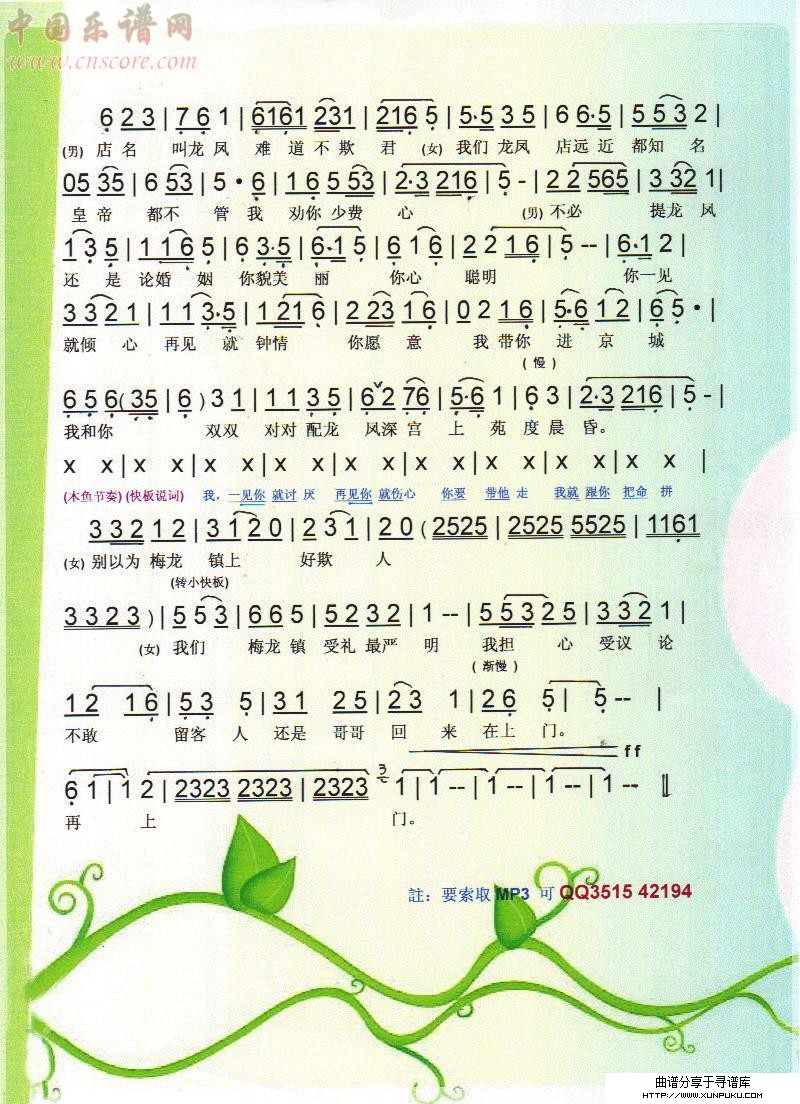 中国乐谱网
www.cnscore.com
6 2 3 | 7 6 1 | 6161 231 | 216 5 | 5·5 3 5 | 6 6·5 | 5 5 3 2 |
(男) 店名 叫龙凤 难道不欺 君 (女) 我们 龙凤 店远近 都知 名
05 35 | 6 53 | 5 · 6 | 1 6 5 53 | 2·3 216 | 5 - | 2 2 565 | 3 32 1 |
皇帝 都不 管我 劝你少费 心 (男) 不必 提龙凤
1 3 5 | 1 1 6 5 | 6 3·5 | 6·1 5 | 6 1 6 | 2 2 1 6 | 5 - - | 6·1 2 |
还是论婚 姻 你貌美丽 你心 聪明 你一见
3 3 2 1 | 1 1 3·5 | 1 21 6 | 2 23 1 6 | 0 2 1 6 | 5·6 1 2 | 6 5 · |
就倾心 再见 就 钟情 你愿意 我带你 进京城
(慢)
6 5 6 ( 35 | 6 ) 3 1 | 1 1 3 5 | 6 2 76 | 5·6 1 | 6 3 | 2·3 216 | 5 - |
我和你 双双 对对配龙 凤深宫 上 苑 度晨 昏。
x x | x x | x x | x x | x x | x x | x x | x x |
(木鱼节奏) (快板说词) 我，一见你 就讨 厌 再见你 就伤心 你要 带他 走 我就 跟你 把命 拼
3 32 1 2 | 3 1 2 0 | 2 3 1 | 2 0 ( 2525 | 2525 5525 | 1161
(女) 别以为 梅龙 镇上 好欺 人
(转小快板)
3 3 2 3 ) | 5 5 3 | 6 6 5 | 5 2 3 2 | 1 - - | 5 5 3 2 5 | 3 3 2 1 |
(女) 我们 梅龙镇 受礼 最严 明 我担 心 受议 论
(渐慢)
1 2 1 6 | 5 3 5 | 3 1 2 5 | 2 3 1 | 2 6 5 | 5 - - |
不敢 留客 人 还是 哥哥 回 来 在上 门。
ff
6 1 | 1 2 | 2323 2323 | 2323 3 1 | 1 - - | 1 - - | 1 - - | 1 - - ‖
再 上 门。
註：要索取 MP3 可 QQ3515 42194
曲谱分享于寻谱库
HTTP://WWW.XUNPUKU.COM